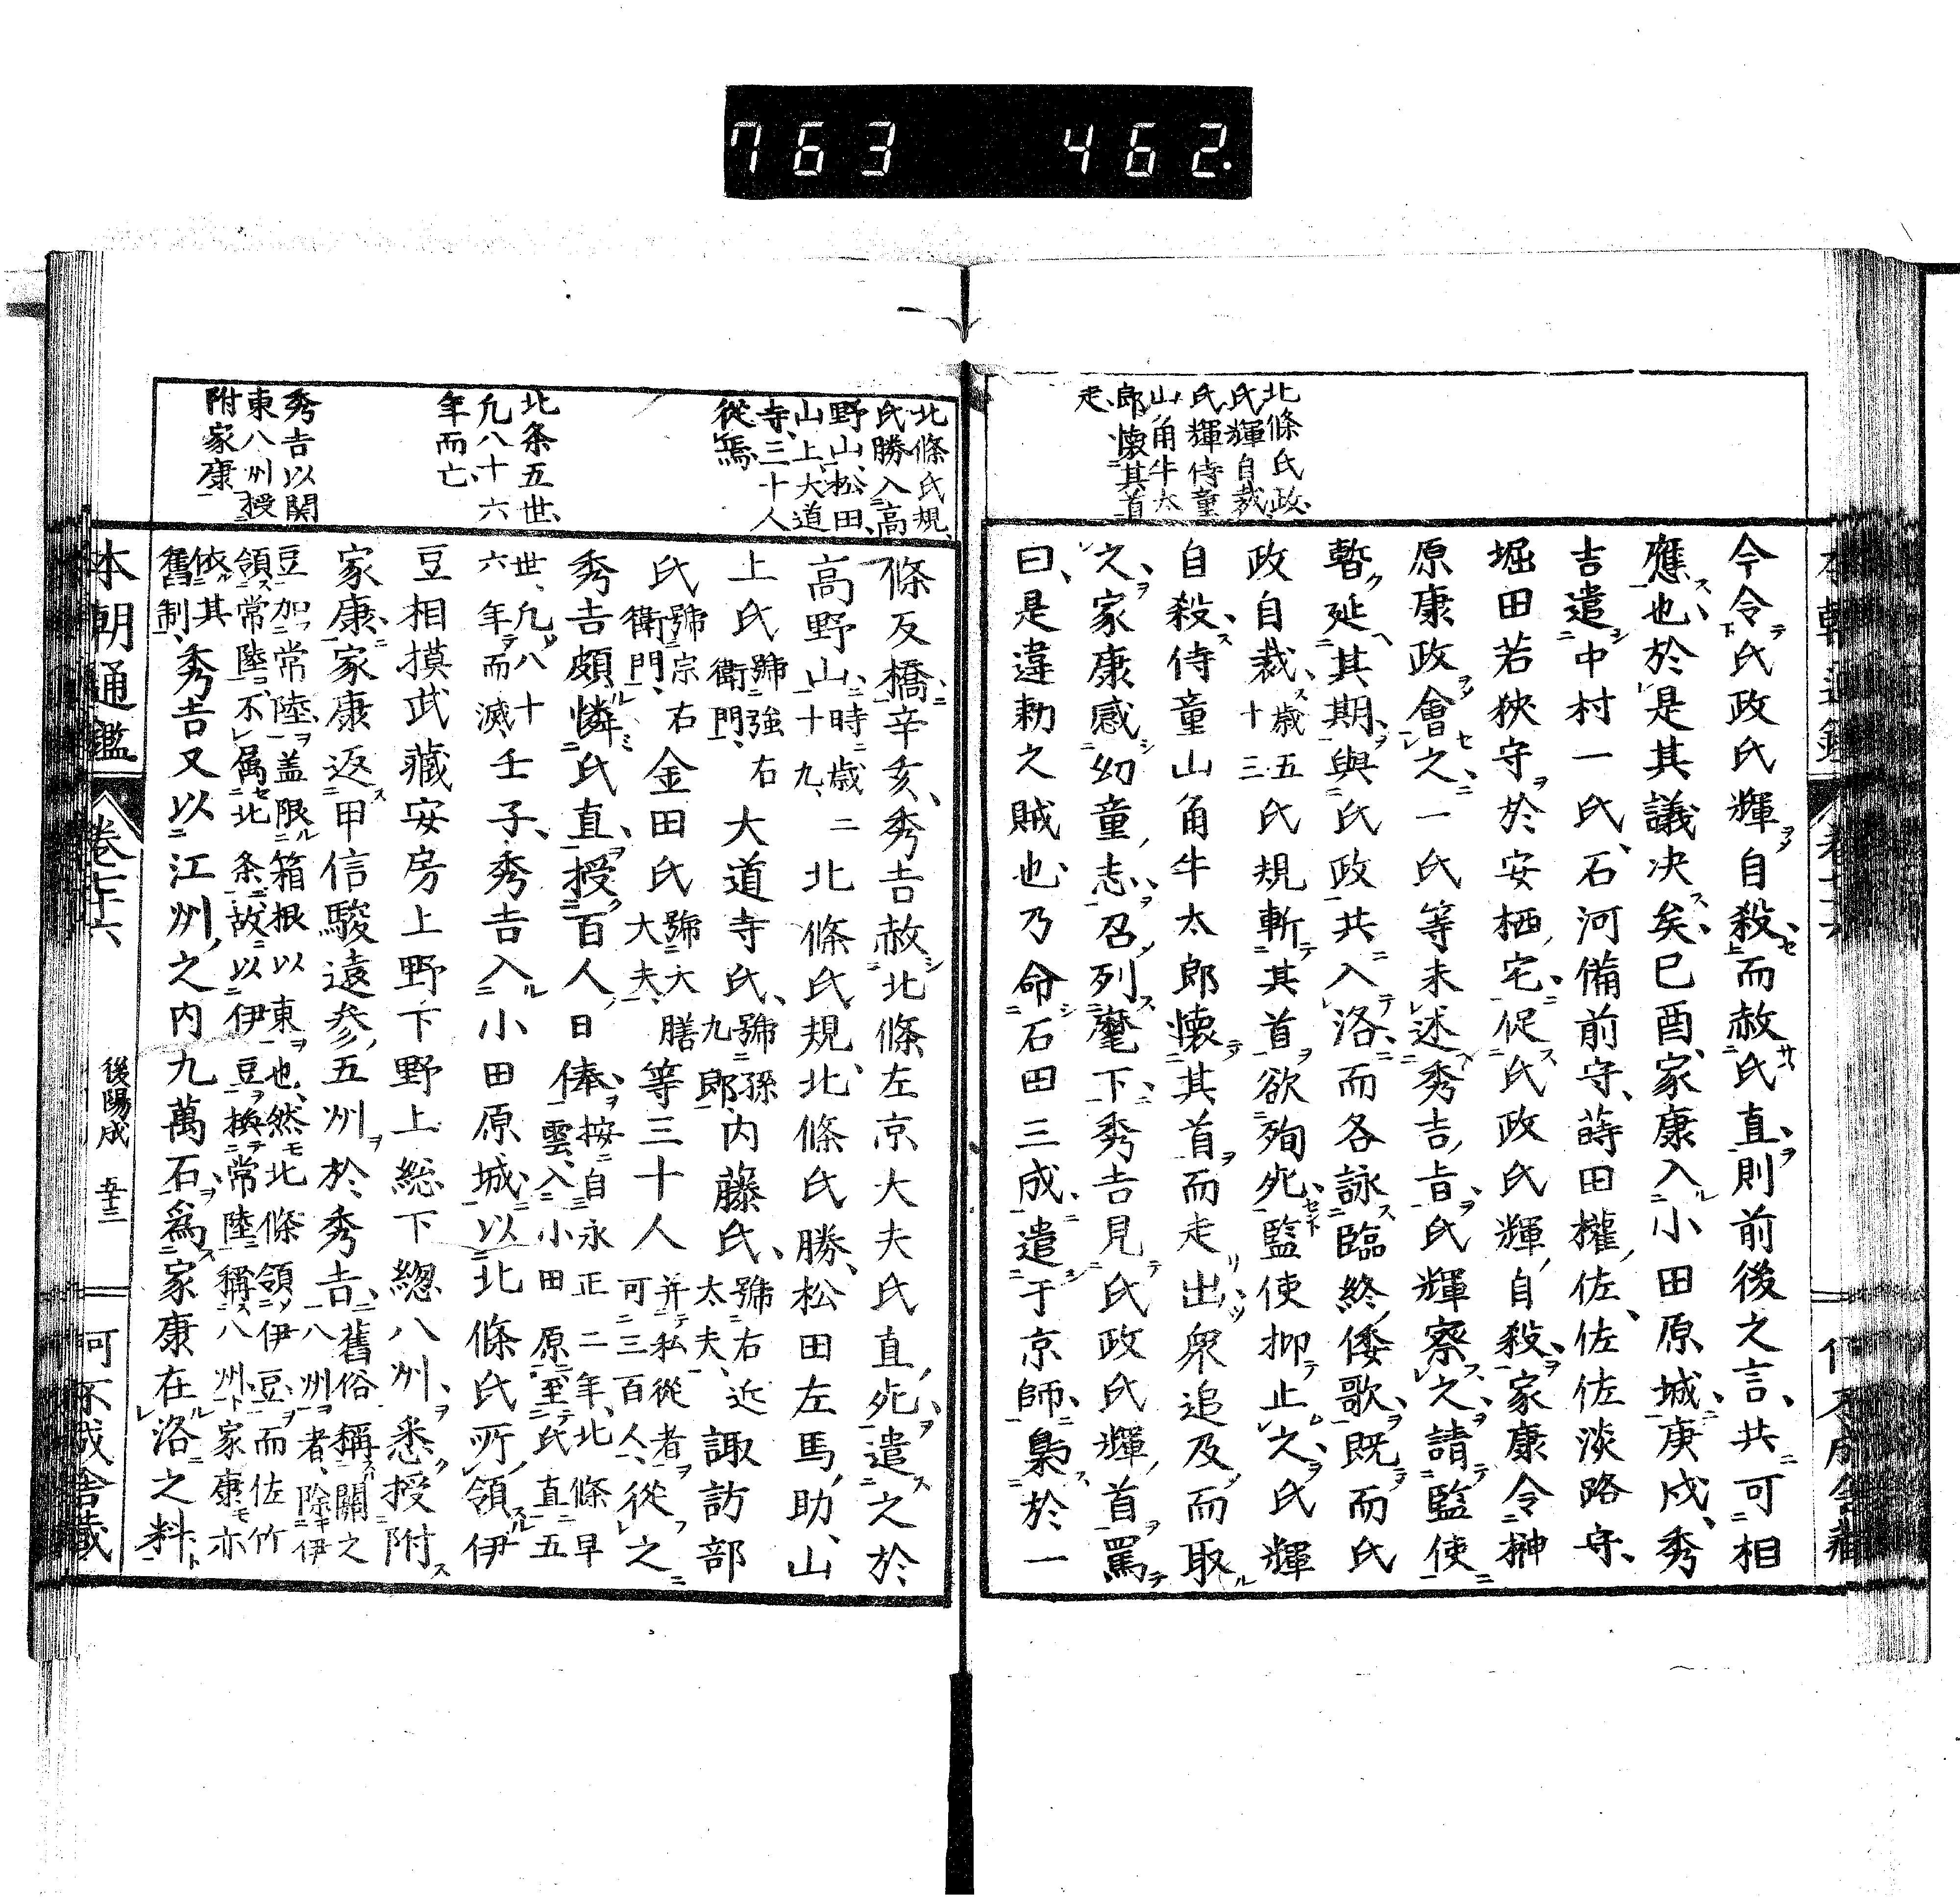 763 462.
北條氏政、
氏輝自裁、
氏輝侍童
山角牛太
郎懷其首
走、
今令氏政氏輝自殺、而赦氏直、則前後之言、共可相
應也、於是其議決矣、己酉、家康入小田原城、庚戌、秀
吉遣中村一氏、石河備前守、蒔田權佐、佐佐淡路守、
堀田若狹守、於安栖宅、促氏政氏輝自殺、家康令榊
原康政會之、一氏等未述秀吉旨、氏輝察之、請監使
暫延其期、與氏政共入洛、而各詠臨終倭歌、既而氏
政自裁、歲五十三氏規斬其首、欲殉死、監使抑止之、氏輝
自殺、侍童山角牛太郎懷其首、而走出、衆追及、而取
之、家康感幼童志、召列麾下、秀吉見氏政氏輝首、罵
曰、是違勅之賊也、乃命石田三成、遣于京師、梟於一
北條氏規、
氏勝入高
野山、松田、
山上大道
寺、三十人
從焉、
北条五世、
凢八十六
年而亡、
秀吉以關
東八州授
附家康
條反橋、辛亥、秀吉赦北條左京大夫氏直死、遣之於
高野山、時歲二十九、北條氏規、北條氏勝、松田左馬助、山
上氏號強右衛門、大道寺氏、號孫九郎、内藤氏、號右近太夫、諏訪部
氏號宗右衛門、金田氏號大膳大夫、等三十人并私從者可三百人、從之
秀吉頗憐氏直、授百人日俸、按自永正二年、北條早雲、入小田原、至氏直五
世、凢八十六年而滅、壬子、秀吉入小田原城、以北條氏所領伊
豆相摸武藏安房上野下野上総下總八州、悉授附
家康、家康返甲信駿遠參五州於秀吉、舊俗稱關之八州者、除伊
豆加常陸、盖限箱根以東也、然北條領伊豆、而佐竹領常陸、不屬北条、故以伊豆換常陸、稱八州、家康亦
依其舊制、秀吉又以江州之内九萬石、爲家康在洛之料、
本朝通鑑
後陽成 五十三